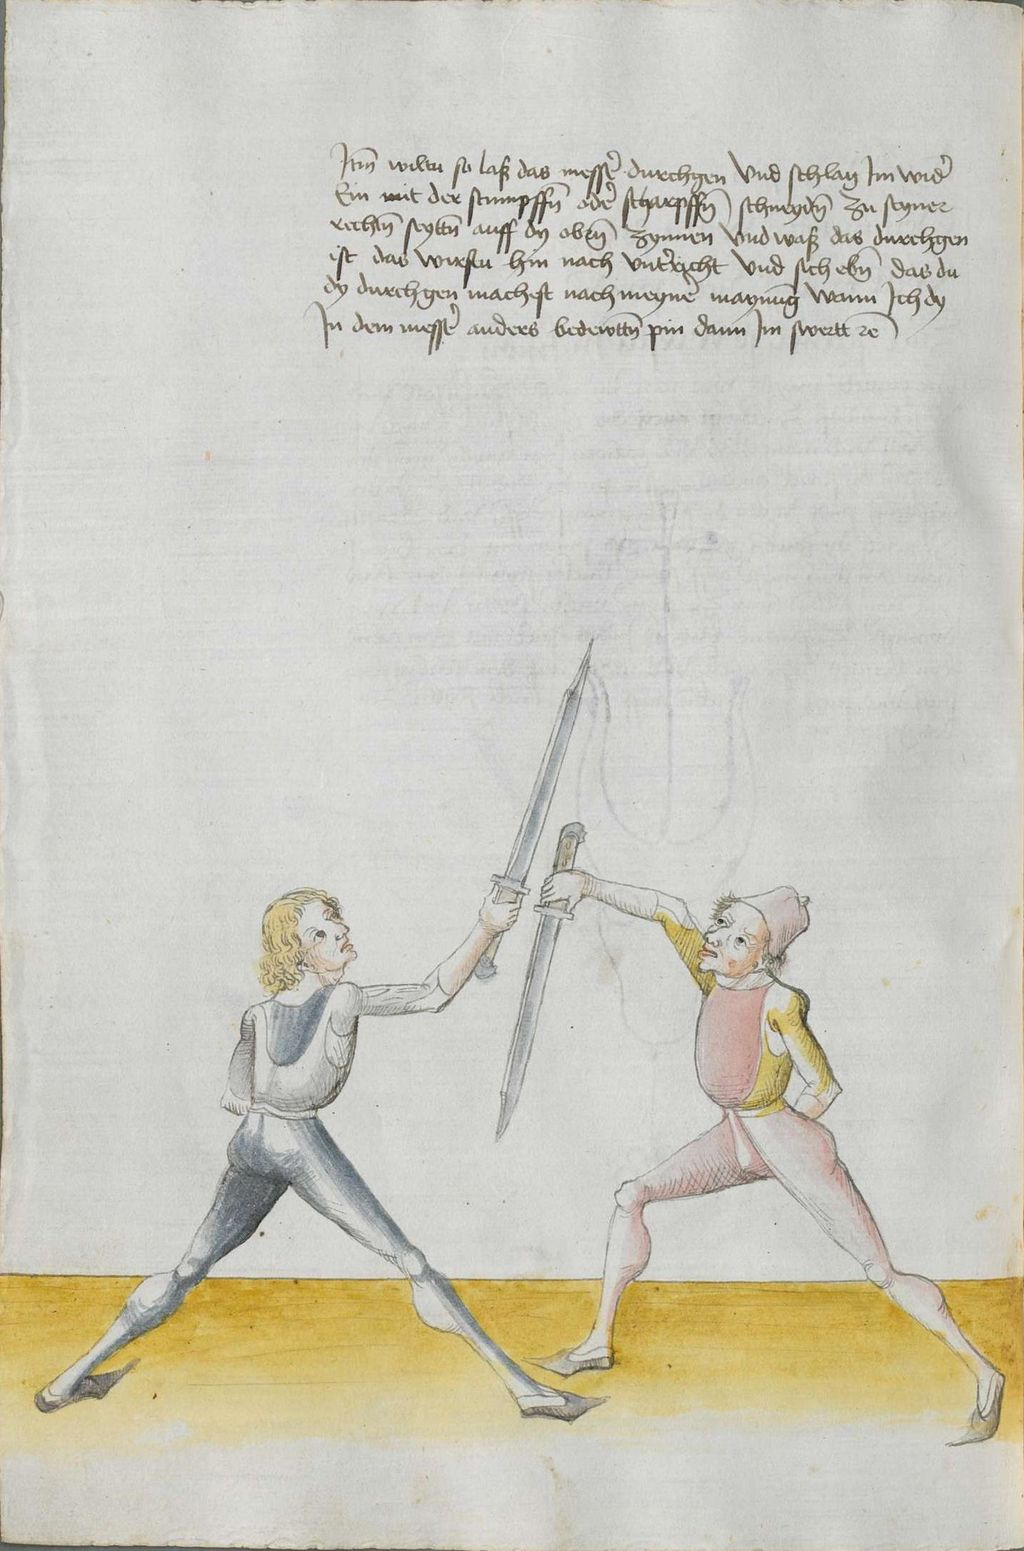 Itm̄ wiltu so laß das messeꝰ durchgen Vnd schlag Im wideꝰ
Ein mit der stumpffn̄ odeꝰ scharpffn̄ schneydn̄ zu seyner
rechtn̄ seyttn̄ auff dy obrn̄ zynnen Vnd waß das durchgen
ist das wirstu hin nach vnterricht Vnd sich ebn̄ das du
dy durchgen machest nach meyneꝰ maynūg Wann Ich dy
In dem messeꝰ anders bedewttn̄ pin dann Im swertt ꝛc̄